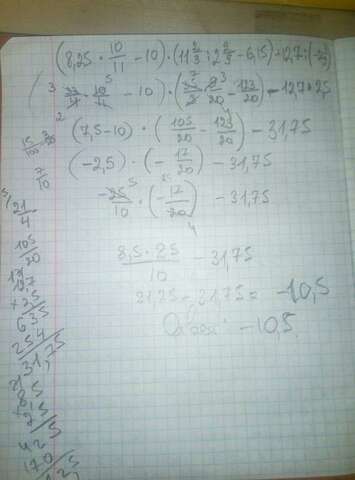 (8,25 · 10/11 − 10) · (11 2/3 : 2 2/9 − 6,15) + 12,7 : (−2/5)
(33/4 · 10/11 − 10) · (35/3 · 9/20 − 123/20) − 12,7 · 2,5
(7,5 − 10) · (105/20 − 123/20) − 31,75
(−2,5) · (−17/20) − 31,75
−25/10 · (−17/20) − 31,75
8,5 · 25/10 − 31,75
21,25 − 31,75 = −10,5
Ответ: −10,5
15/100
7/10
21/4
105/20
127
× 25
635
254
31,75
85
× 25
425
170